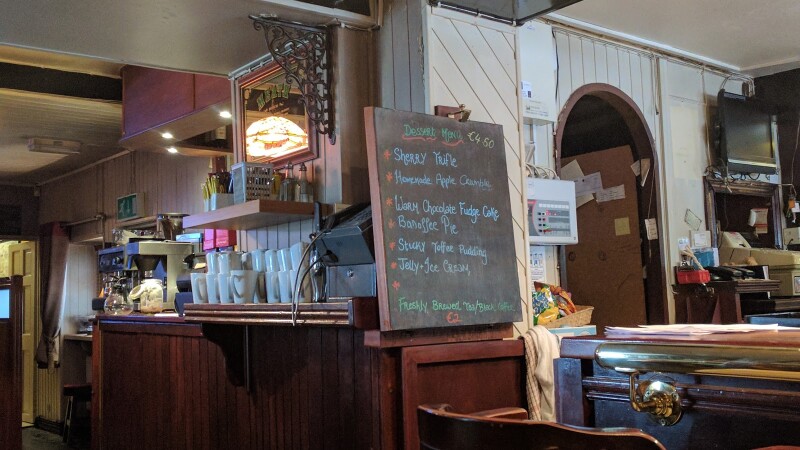 Dessert Menu €4.50
Sherry Trifle
Homemade Apple Crumble
Warm Chocolate Fudge Cake
Banoffee Pie
Sticky Toffee Pudding
Jelly + Ice Cream
Freshly Brewed Tea/Black Coffee
€2